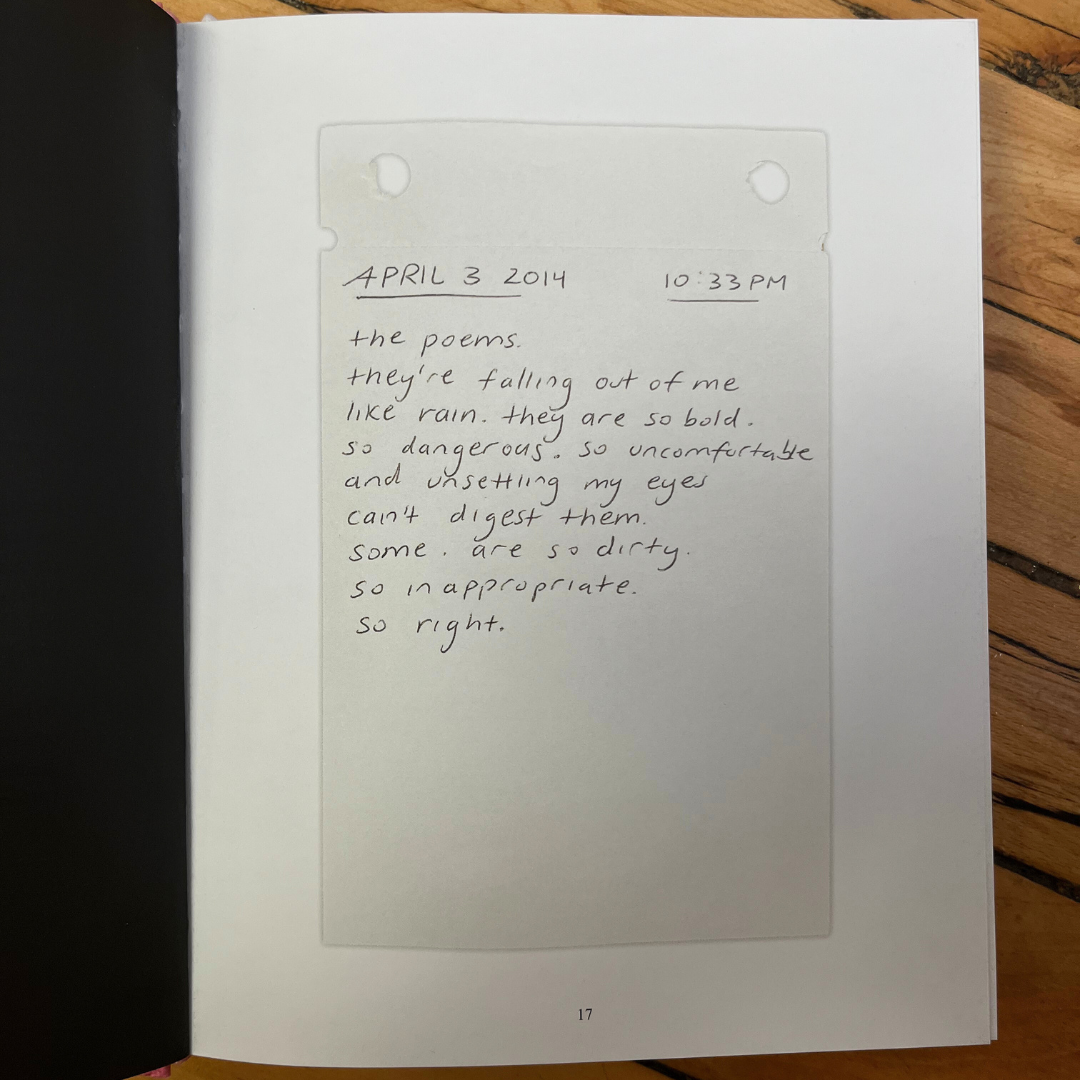 APRIL 3 2014 10:33 PM
the poems.
they're falling out of me
like rain. they are so bold.
so dangerous. so uncomfortable
and unsettling my eyes
can't digest them.
some. are so dirty.
so inappropriate.
so right.
17